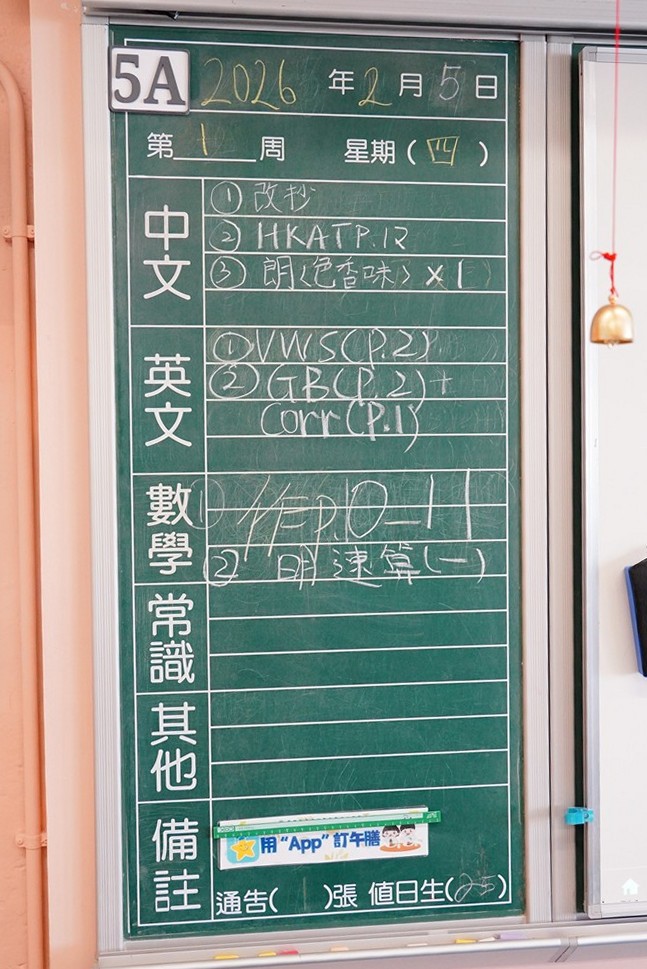 5A 2026 年 2 月 5 日
第 1 周 星期(四)
中文
① 改抄
② HKAT P.12
③ 朗<色香味> x 1
英文
① VWS (P.2)
② GB (P.2) +
Corr (P.1)
數學
① 作P.10-11
② 明 速算(一)
常識
其他
備註
用“App”訂午膳
通告( )張 值日生(25)